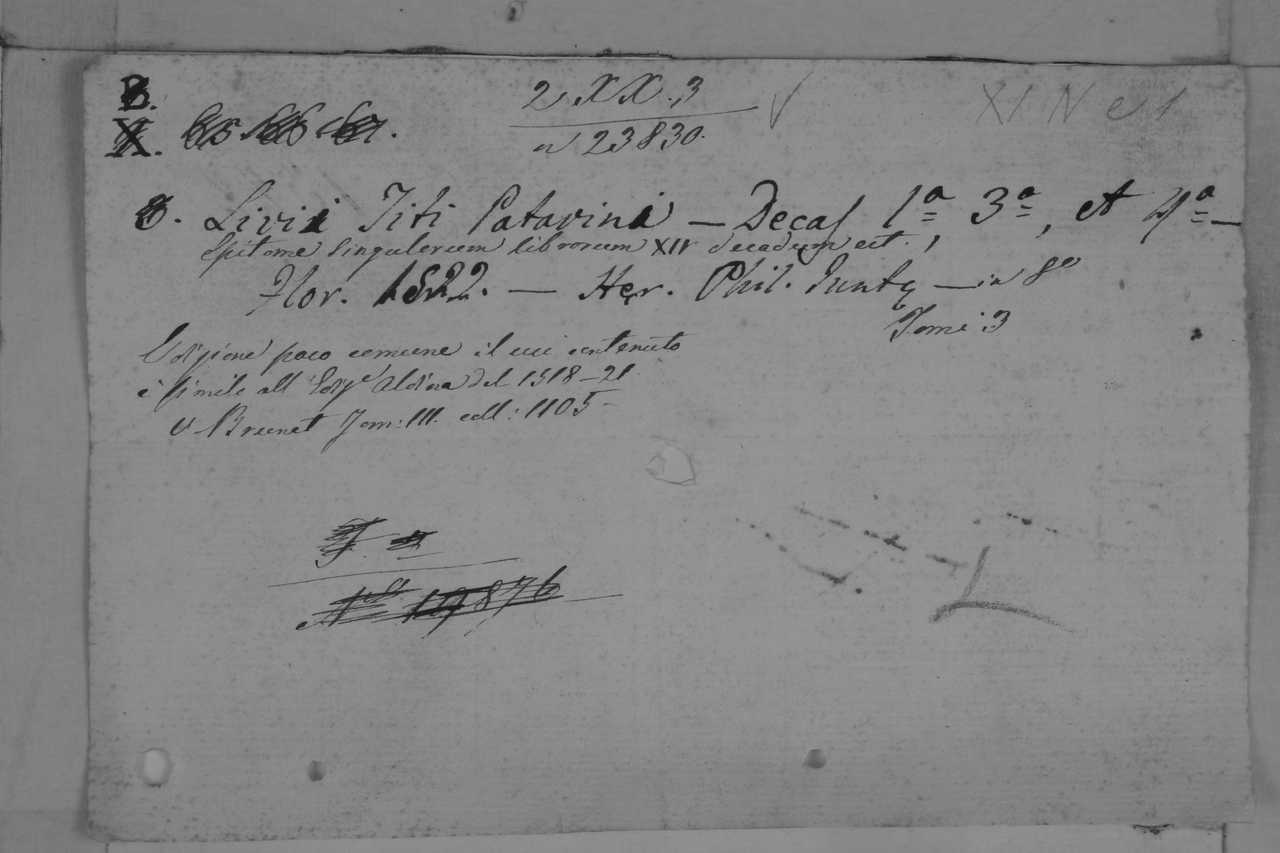 B.
X. 65 66 67.
2 XX. 3
n 23830.
XI N e 1
8. Livii Titi Patavini — Decas 1ª 3ª, et 4ª —
Epitome singulorum librorum XIV decadum
Flor. 1522. — Her. Phil. Juntę — in 8º
Tomi 3
Edizione poco comune il cui contenuto
è simile all' Edizᵉ Aldina del 1518-21
V. Brunet Tom: III. coll: 1105
Nº 19876
L